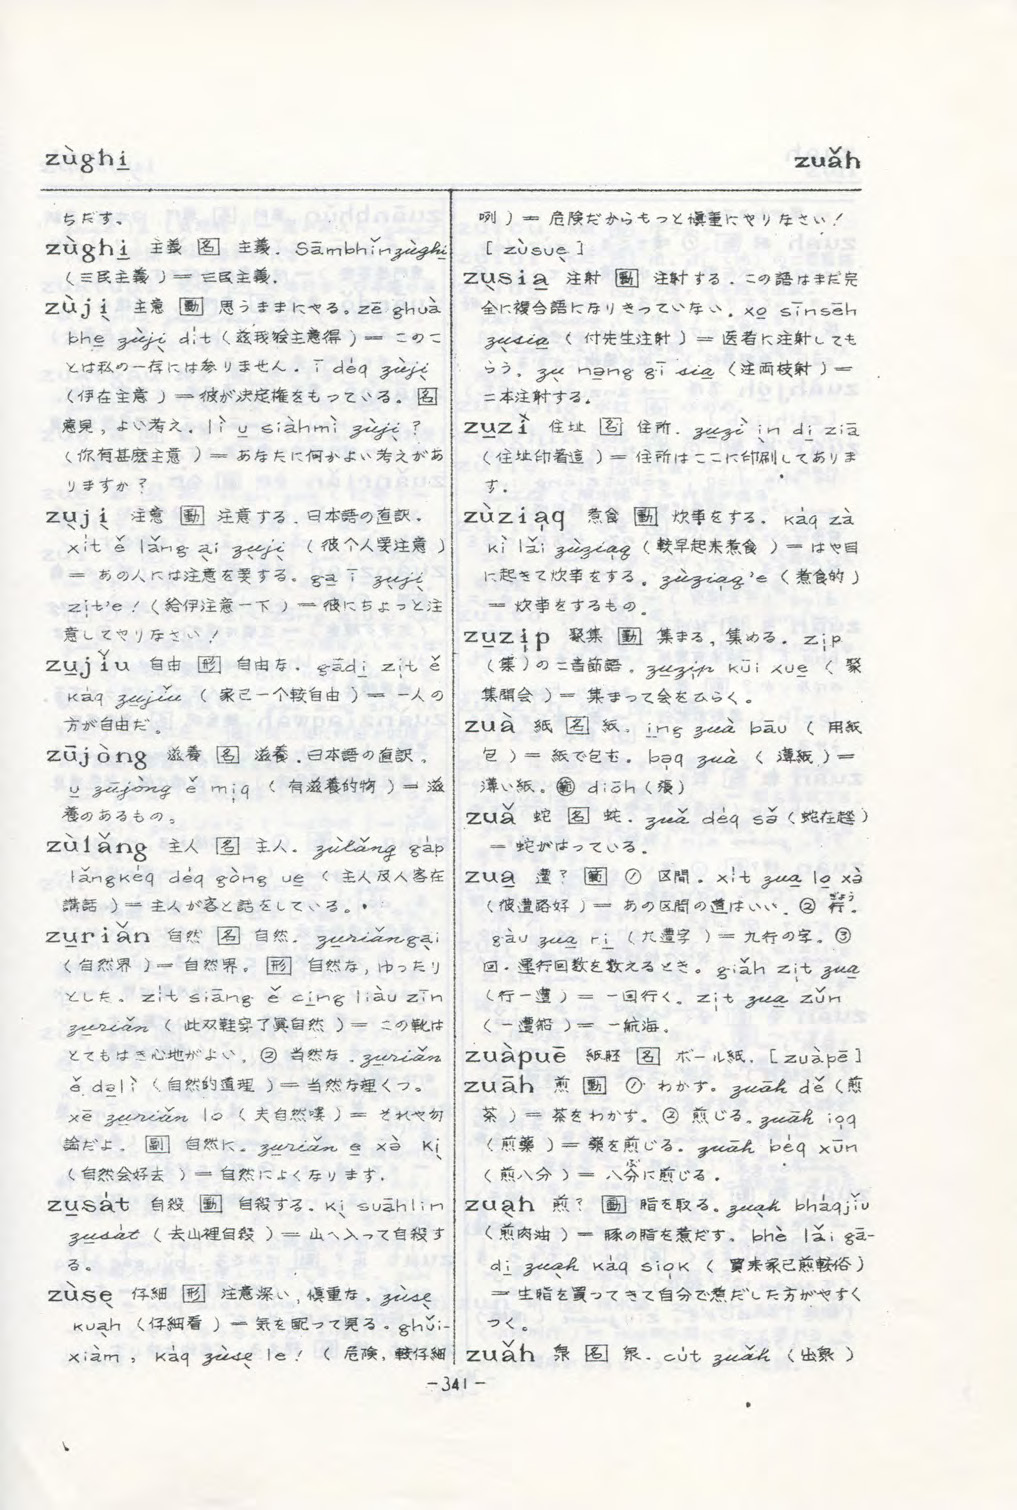 zùghi̱
zuǎh
ちだす。
zùghi̱ 主義 [名] 主義. Sāmbhǐnzùghi̱
(三民主義)= 三民主義.
zùji̱ 主意 [動] 思うままにやる。zē ghuà
bhe̱ zùji̱ dı̍t (茲我獪主意得)= このこ
とは私の一存には参りません. ī dẹq zùji̱
(伊在主意)= 彼が決定権をもっている。[名]
意見, よい考え. lì u̱ siàhmì zùji̱ ?
(你有甚麽主意)= あなたに何かよい考えがあ
りますか?
zu̱ji̱ 注意 [動] 注意する. 日本語の直訳.
xı̍t ě lǎng ại zu̱ji̱ (彼个人要注意)
= あの人には注意を要する。ga̱ ī zu̱ji̱
zịt'e ! (給伊注意一下)= 彼にちょっと注
意してやりなさい!
zu̱jiǔ 自由 [形] 自由な. gādi̱ zịt ě
kạq zu̱jiǔ (家己一个較自由)= 一人の
方が自由だ。
zūjòng 滋養 [名] 滋養. 日本語の直訳.
u̱ zūjòng ě mịq (有滋養的物)= 滋
養のあるもの。
zùlǎng 主人 [名] 主人. zùlǎng gáp
lǎngkéq déq gòng ue̱ (主人及人客在
講話)= 主人が客と話をしている。
zu̱riǎn 自然 [名] 自然. zu̱riǎngại
(自然界)= 自然界。[形] 自然な, ゆったり
とした. zı̍t siāng ě cīng liàu zīn
zu̱riǎn (此双鞋穿了真自然)= この靴は
とてもはき心地がよい. ② 当然な. zu̱riǎn
ě dəlì (自然的道理)= 当然な理くつ。
xē zu̱riǎn lo (夫自然嘍)= それや勿
論だよ. [副] 自然に. zu̱riǎn e̱ xà kị
(自然会好去)= 自然によくなります.
zu̱sát 自殺 [動] 自殺する. kị suāhlin
zu̱sát (去山裡自殺)= 山へ入って自殺す
る。
zùsẹ 仔細 [形] 注意深い, 慎重な. zùsẹ
kuạh (仔細看)= 気を配って見る. ghǔi-
xiàm, káq zùsẹ le ! (危険, 較仔細
咧)= 危険だからもっと慎重にやりなさい!
[zùsuẹ]
zụsia̱ 注射 [動] 注射する. この語はまだ完
全に複合語になりきっていない. xọ sīnsēh
zụsia̱ (付先生注射)= 医者に注射しても
らう. zụ nə̱ng gī sia̱ (注両枝射)=
二本注射する.
zu̱zì 住址 [名] 住所. zu̱zì ịn di̱ ziā
(住址印着這)= 住所はここに印刷してありま
す.
zùziạq 煮食 [動] 炊事をする. káq zà
kì lǎi zùziạq (較早起来煮食)= はや目
に起きて炊事をする。zùziạq'e (煮食的)
= 炊事をするもの。
zu̱zịp 聚集 [動] 集まる, 集める. zịp
(集)の二音節語. zu̱zịp kūi xue̱ (聚
集開会)= 集まって会をひらく。
zuà 紙 [名] 紙. ing zuà bāu (用紙
包)= 紙で包む. bạq zuà (薄紙)=
薄い紙. [範] diōh (張)
zuǎ 蛇 [名] 蛇. zuǎ déq sǒ (蛇在趖)
= 蛇がはっている.
zua̱ 遭? [範] ① 区間. xı̍t zua̱ lo̱ xà
(彼遭路好)= あの区間の道はいい. ② 行.
gàu zua̱ ri̱ (九遭字)= 九行の字。③
回. 運行回数を数えるとき。giǎh zịt zua̱
(行一遭)= 一回行く。zịt zua̱ zǔn
(一遭船)= 一航海.
zuàpuē 紙胚 [名] ボール紙. [zuàpē]
zuāh 煎 [動] ① わかす. zuāh dě (煎
茶)= 茶をわかす. ② 煎じる. zuāh iọq
(煎藥)= 藥を煎じる. zuāh béq xūn
(煎八分)= 八分に煎じる.
zuạh 煎? [動] 脂を取る. zuạh bháqjiǔ
(煎肉油)= 豚の脂を煮だす. bhè lǎi gā-
di̱ zuạh káq siọk (買来家己煎較俗)
= 生脂を買ってきて自分で煮だした方がやすく
つく。
zuǎh 泉 [名] 泉. cút zuǎh (出泉)
-341-